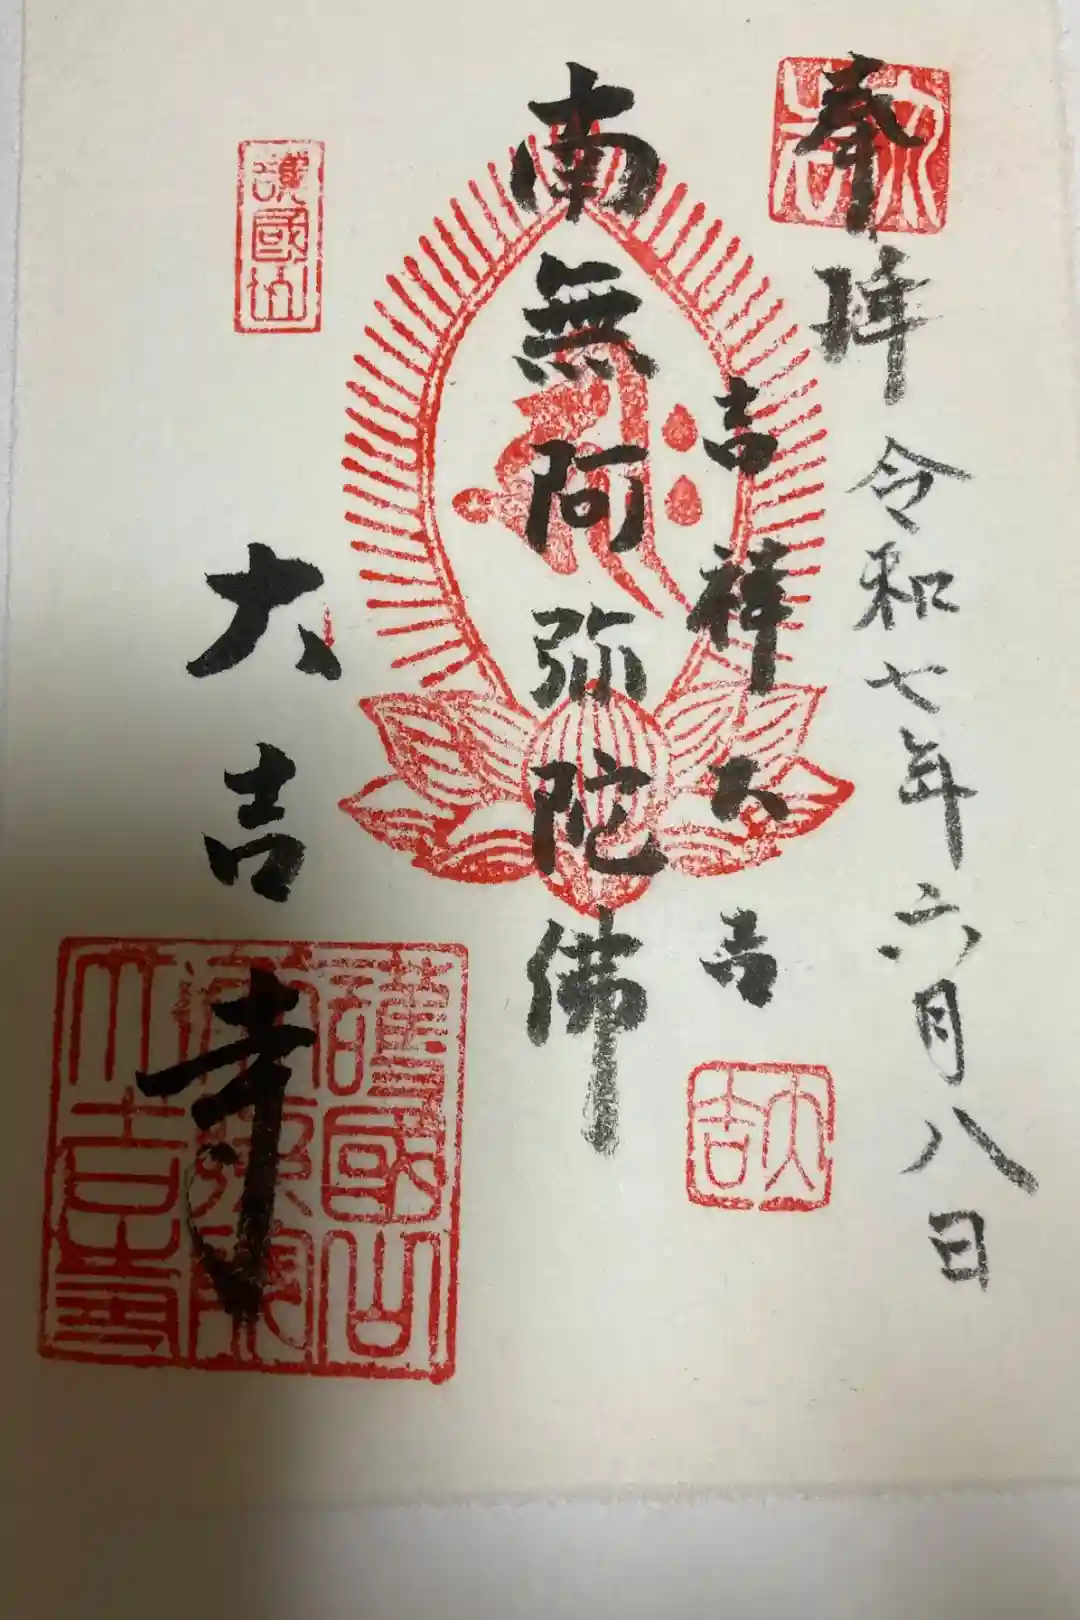 奉拝
令和七年六月八日
吉祥大吉
大吉
南無阿弥陀佛
護國山
大吉寺
護國山
大吉寺